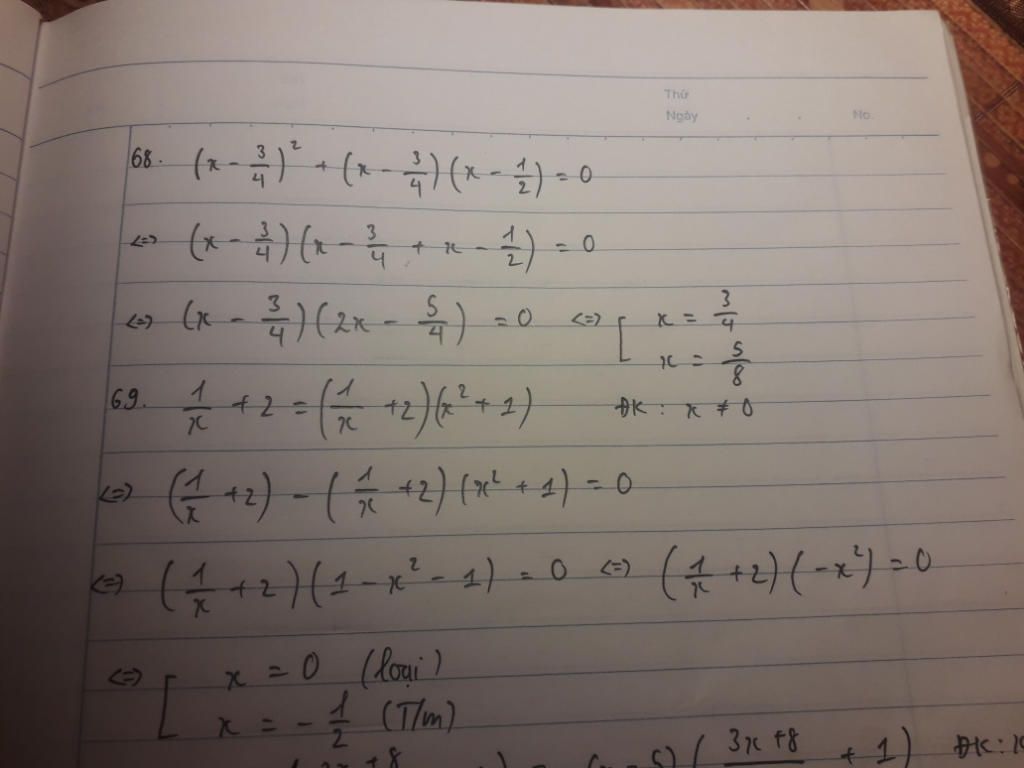 Thứ
Ngày . . No.
68. (x - 3/4)² + (x - 3/4)(x - 1/2) = 0
<=> (x - 3/4)(x - 3/4 + x - 1/2) = 0
<=> (x - 3/4)(2x - 5/4) = 0 <=> [ x = 3/4
x = 5/8
69. 1/x + 2 = (1/x + 2)(x² + 1) ĐK: x ≠ 0
<=> (1/x + 2) - (1/x + 2)(x² + 1) = 0
<=> (1/x + 2)(1 - x² - 1) = 0 <=> (1/x + 2)(-x²) = 0
<=> [ x = 0 (loại)
x = - 1/2 (T/m)
(3x + 8/ = (x - 5)(3x + 8/ + 1) ĐK: